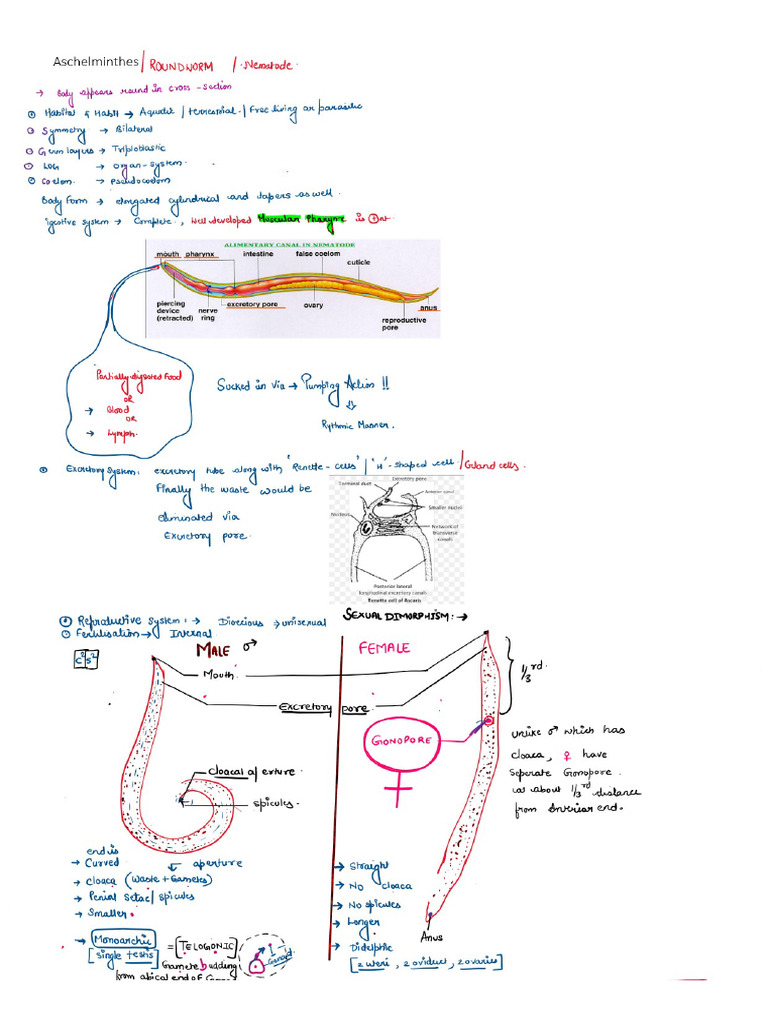 Aschelminthes / ROUNDWORM / Nematode.
→ Body appears round in cross-section
Habitat & Habit → Aquatic / terrestrial / Free living or parasitic
Symmetry → Bilateral
Germ layers → Triploblastic
LOG → organ-system.
Coelom. → pseudocoelom
Body Form → elongated cylindrical and tapers as well.
igestive system → Complete, Well developed Muscular Pharynx is +nt
ALIMENTARY CANAL IN NEMATODE
mouth pharynx intestine false coelom
cuticle
piercing device (retracted)
nerve ring
excretory pore
ovary
anus
reproductive pore
Partially digested Food
OR
→ Blood
OR
→ Lymph.
Sucked in via → Pumping Action !!
Rythmic Manner.
Excretory System: excretory tube along with "Renette-cells" / "H"-shaped cell / Gland cells.
Finally the waste would be
eliminated via
Excretory pore.
Excretory pore
Terminal duct
Anterior canal
Smaller nuclei
Nucleus
Network of transverse canals
Posterior lateral longitudinal excretory canals
Renette cell of Ascaris
Reproductive System: → Dioecious → unisexual
SEXUAL DIMORPHISM: →
Fertilisation → Internal
C²S²
MALE ♂
FEMALE
Mouth.
1/3rd.
Excretory pore
GONOPORE
♀
unlike ♂ which has
cloaca, ♀ have
seperate Gonopore.
at about 1/3rd distance
from Anterior end.
Cloacal aperture.
spicules.
end is
→ Curved
aperture
→ cloaca (Waste + Gametes)
→ Penial Setae / spicules
→ Smaller.
→ Monoarchic
[single testis]
= [TELOGONIC]
Gamete budding
from apical end of
Gonad
→ Straight
→ No cloaca
→ No spicules
→ Longer
→ Didelphic
[2 uteri, 2 oviduct, 2 ovaries]
Anus